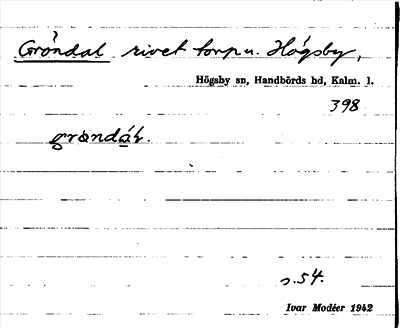 Gröndal rivet torp u. Högsby,
Högsby sn, Handbörds hd, Kalm. l.
398
grøndáh.
s. 54.
Ivar Modéer 1942